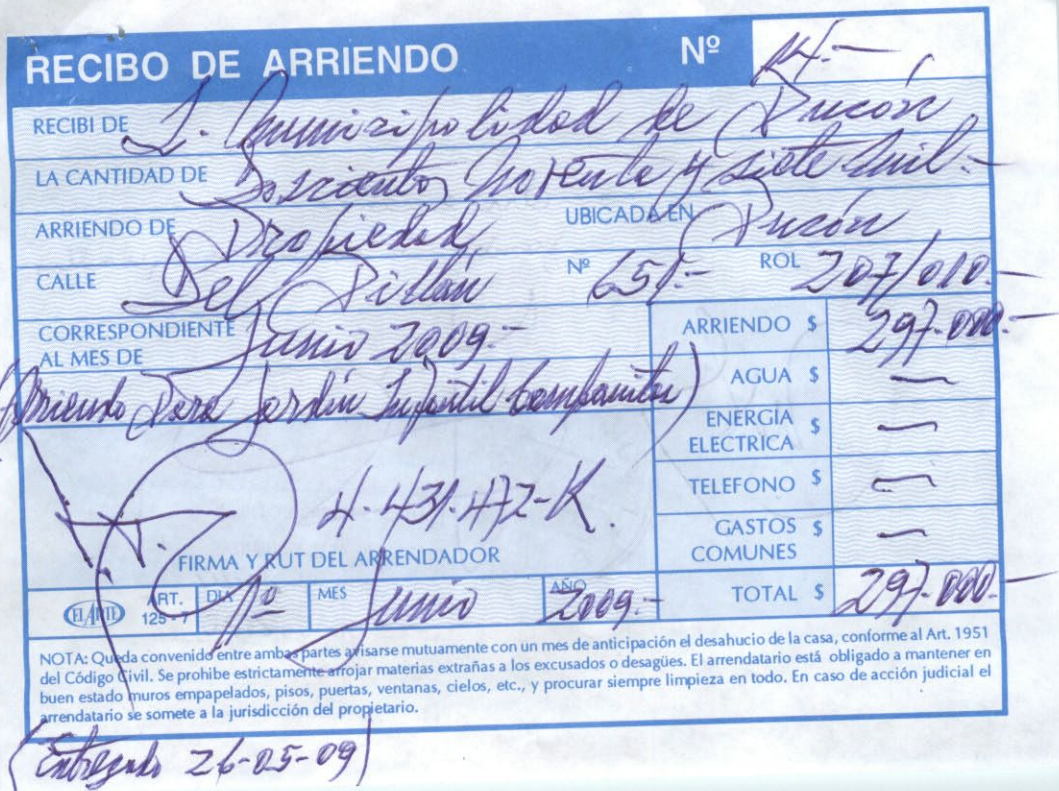 RECIBO DE ARRIENDO Nº 14.-
RECIBI DE I. Municipalidad de Pucón
LA CANTIDAD DE Doscientos Noventa y siete mil.-
ARRIENDO DE Propiedad UBICADA EN Pucón
CALLE Del Pillán Nº 651.- ROL 207/010.-
CORRESPONDIENTE
AL MES DE Junio 2009.-
ARRIENDO $ 297.000.-
(Arriendo Para Jardín Infantil Campanitas)
AGUA $ —
ENERGÍA
ELECTRICA $ —
TELEFONO $ —
GASTOS
COMUNES $ —
4.431.472-K.
FIRMA Y RUT DEL ARRENDADOR
ART.
125-7
DIA 1º MES Junio AÑO 2009.-
TOTAL $ 297.000.-
NOTA: Queda convenido entre ambas partes avisarse mutuamente con un mes de anticipación el desahucio de la casa, conforme al Art. 1951
del Código Civil. Se prohibe estrictamente arrojar materias extrañas a los excusados o desagües. El arrendatario está obligado a mantener en
buen estado muros empapelados, pisos, puertas, ventanas, cielos, etc., y procurar siempre limpieza en todo. En caso de acción judicial el
arrendatario se somete a la jurisdicción del propietario.
(Entregado 26-05-09)